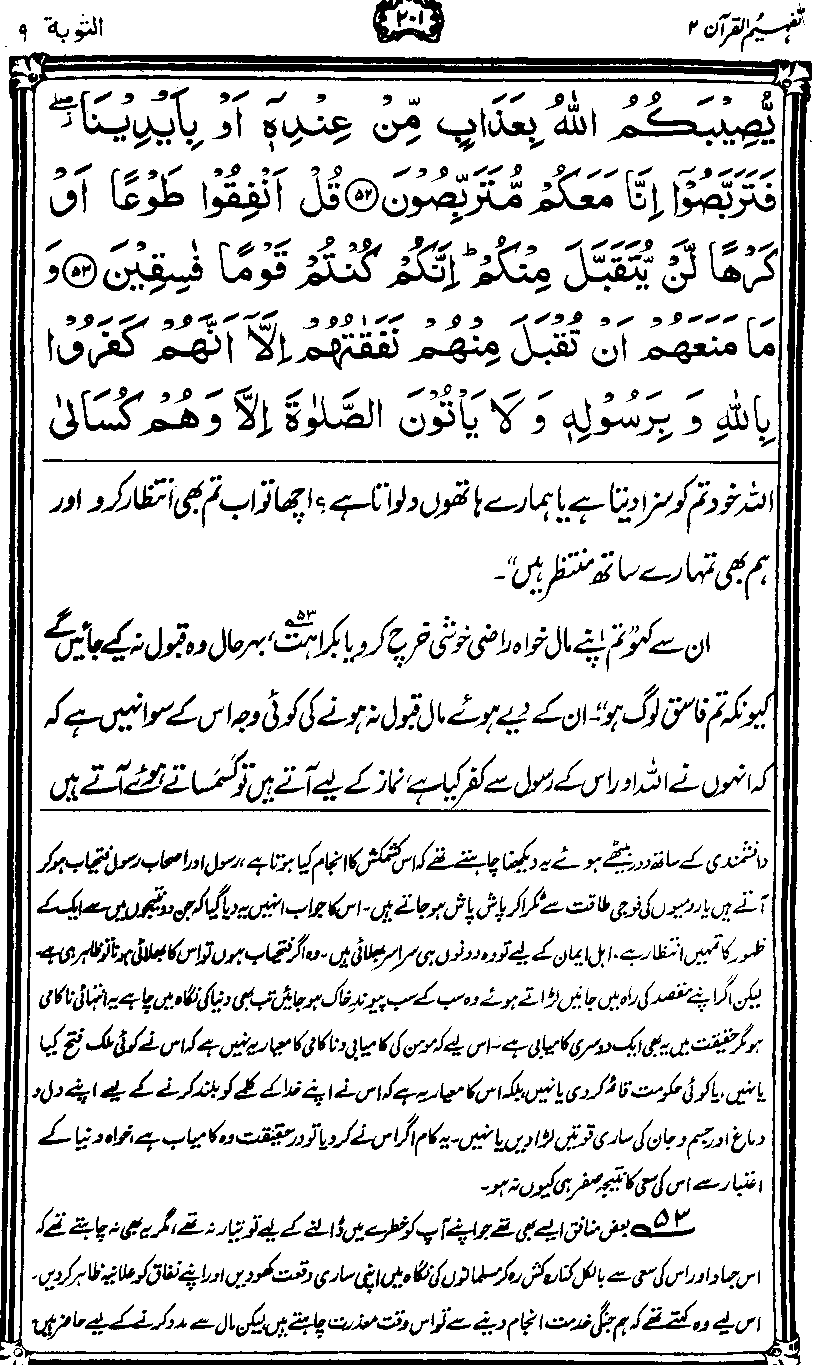 تفہیم القرآن ۲
۲۰۱
التوبۃ ۹
يُّصِيْبَكُمُ اللّٰهُ بِعَذَابٍ مِّنْ عِنْدِهٖٓ اَوْ بِاَيْدِيْنَا ۖ
فَتَرَبَّصُوْٓا اِنَّا مَعَكُمْ مُّتَرَبِّصُوْنَ ﴿۵۲﴾ قُلْ اَنْفِقُوْا طَوْعًا اَوْ
كَرْهًا لَّنْ يُّتَقَبَّلَ مِنْكُمْ ؕ اِنَّكُمْ كُنْتُمْ قَوْمًا فٰسِقِيْنَ ﴿۵۳﴾ وَ
مَا مَنَعَهُمْ اَنْ تُقْبَلَ مِنْهُمْ نَفَقٰتُهُمْ اِلَّآ اَنَّهُمْ كَفَرُوْا
بِاللّٰهِ وَ بِرَسُوْلِهٖ وَ لَا يَاْتُوْنَ الصَّلٰوةَ اِلَّا وَهُمْ كُسَالٰى
اللہ خود تم کو سزا دیتا ہے یا ہمارے ہاتھوں دلواتا ہے؟ اچھا تو اب تم بھی انتظار کرو اور
ہم بھی تمہارے ساتھ منتظر ہیں“۔
ان سے کہو ”تم اپنے مال خواہ راضی خوشی خرچ کرو یا بکراہت،۵۳ بہر حال وہ قبول نہ کیے جائیں گے
کیونکہ تم فاسق لوگ ہو“۔ ان کے دیے ہوئے مال قبول نہ ہونے کی کوئی وجہ اس کے سوا نہیں ہے کہ
کہ انہوں نے اللہ اور اس کے رسول سے کفر کیا ہے، نماز کے لیے آتے ہیں تو کسمساتے ہوئے آتے ہیں
دانشمندی کے ساتھ دور بیٹھے ہوئے یہ دیکھنا چاہتے تھے کہ اس کشمکش کا انجام کیا ہوتا ہے، رسول اور اصحاب رسول فتحیاب ہو کر
آتے ہیں یا رومیوں کی فوجی طاقت سے ٹکرا کر پاش پاش ہو جاتے ہیں۔ اس کا جواب انہیں یہ دیا گیا کہ جن دو نتیجوں میں سے ایک کے
ظہور کا تمہیں انتظار ہے، اہل ایمان کے لیے تو وہ دونوں ہی سراسر بھلائی ہیں۔ وہ اگر فتحیاب ہوں تو اس کا بھلائی ہونا تو ظاہر ہی ہے۔
لیکن اگر اپنے مقصد کی راہ میں جانیں لڑاتے ہوئے وہ سب کے سب پیوندِ خاک ہو جائیں تب بھی دنیا کی نگاہ میں چاہے یہ انتہائی ناکامی
ہو مگر حقیقت میں یہ بھی ایک دوسری کامیابی ہے۔ اس لیے کہ مومن کی کامیابی و ناکامی کا معیار یہ نہیں ہے کہ اس نے کوئی ملک فتح کیا
یا نہیں، یا کوئی حکومت قائم کر دی یا نہیں، بلکہ اس کا معیار یہ ہے کہ اس نے اپنے خدا کے کلمے کو بلند کرنے کے لیے اپنے دل و
دماغ اور جسم و جان کی ساری قوتیں لڑا دیں یا نہیں۔ یہ کام اگر اس نے کر دیا تو در حقیقت وہ کامیاب ہے، خواہ دنیا کے
اعتبار سے اس کی سعی کا نتیجہ صفر ہی کیوں نہ ہو۔
۵۳ بعض منافق ایسے بھی تھے جو اپنے آپ کو خطرے میں ڈالنے کے لیے تو تیار نہ تھے، مگر یہ بھی نہ چاہتے تھے کہ
اس جہاد اور اس کی سعی سے بالکل کنارہ کش رہ کر مسلمانوں کی نگاہ میں اپنی ساری وقعت کھو دیں اور اپنے نفاق کو علانیہ ظاہر کر دیں۔
اس لیے وہ کہتے تھے کہ ہم جنگی خدمت انجام دینے سے تو اس وقت معذرت چاہتے ہیں لیکن مال سے مدد کرنے کے لیے حاضر ہیں۔